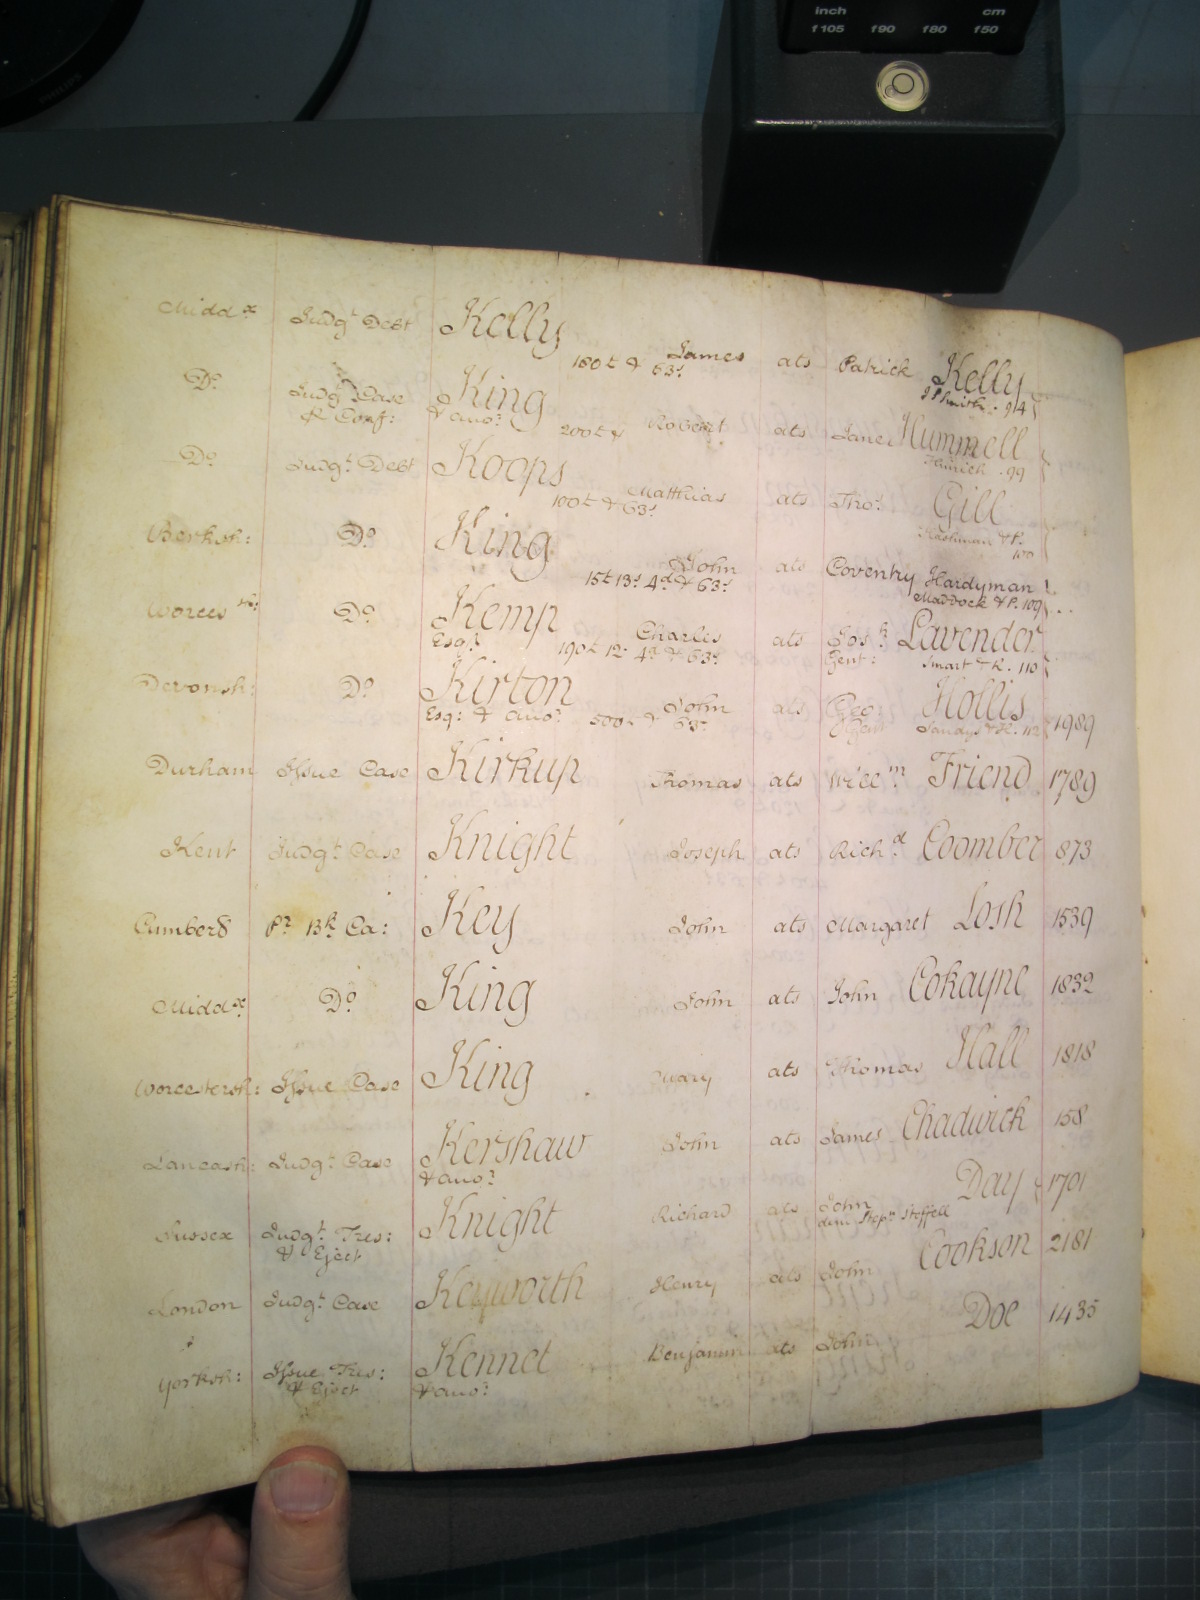 inch cm
f105 f90 f80 f50
PHILIPS
Midd.x Judg.t Debt Kelly James ats Patrick Kelly
180£ & 63.s J Smith . 94
D.o Judg.t Case King Robert ats Jane Hummell
& Conf: & ano.r 200£ & . 99
D.o Judg.t Debt Koops Matthias ats Tho.s Gill
100£ & 63.s & P. 100
Berksh: D.o King John ats Coventry Hardyman
15£ 13.s 4.d & 63.s Maddock & P. 109
Worces D.o Kemp Charles ats Jos.h Lavender
Esq.r 190£ 12. 4.d & 63.s Gent: Smart & K. 110
Devonsh: D.o Kirton John ats Geo: Hollis 1989
Esq: & ano.r 500£ & 63.s Gent Sandys & H. 112
Durham Issue Case Kirkup Thomas ats Will.m Friend 1789
Kent Judg.t Case Knight Joseph ats Rich.d Coomber 873
Cumber P.r Bk Ca: Key John ats Margaret Losh 1539
Midd.x D.o King John ats John Cokayne 1832
Worcestersh: Issue Case King Mary ats Thomas Hall 1818
Lancash: Judg.t Case Kershaw John ats James Chadwick 158
& ano.r
Sussex Judg.t Tres: Knight Richard ats John Day 1701
& Eject dem Step.n Steffell
London Judg.t Case Keyworth Henry ats John Cookson 2181
Yorksh: Issue Tres: Kennet Benjamin ats John Doe 1435
& Eject & ano.r